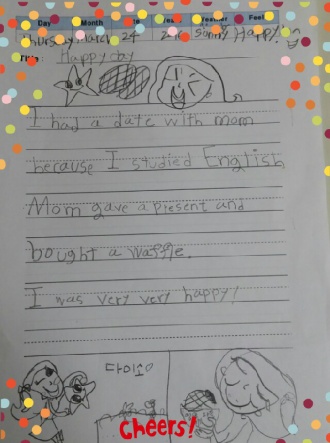 Day Month Date Year Weather Feel
Thursday March 24 Sunny Happy!
Title: Happy day
I had a date with mom
because I studied English
Mom gave a present and
bought a waffle.
I was very very happy!
다이소
Cheers!